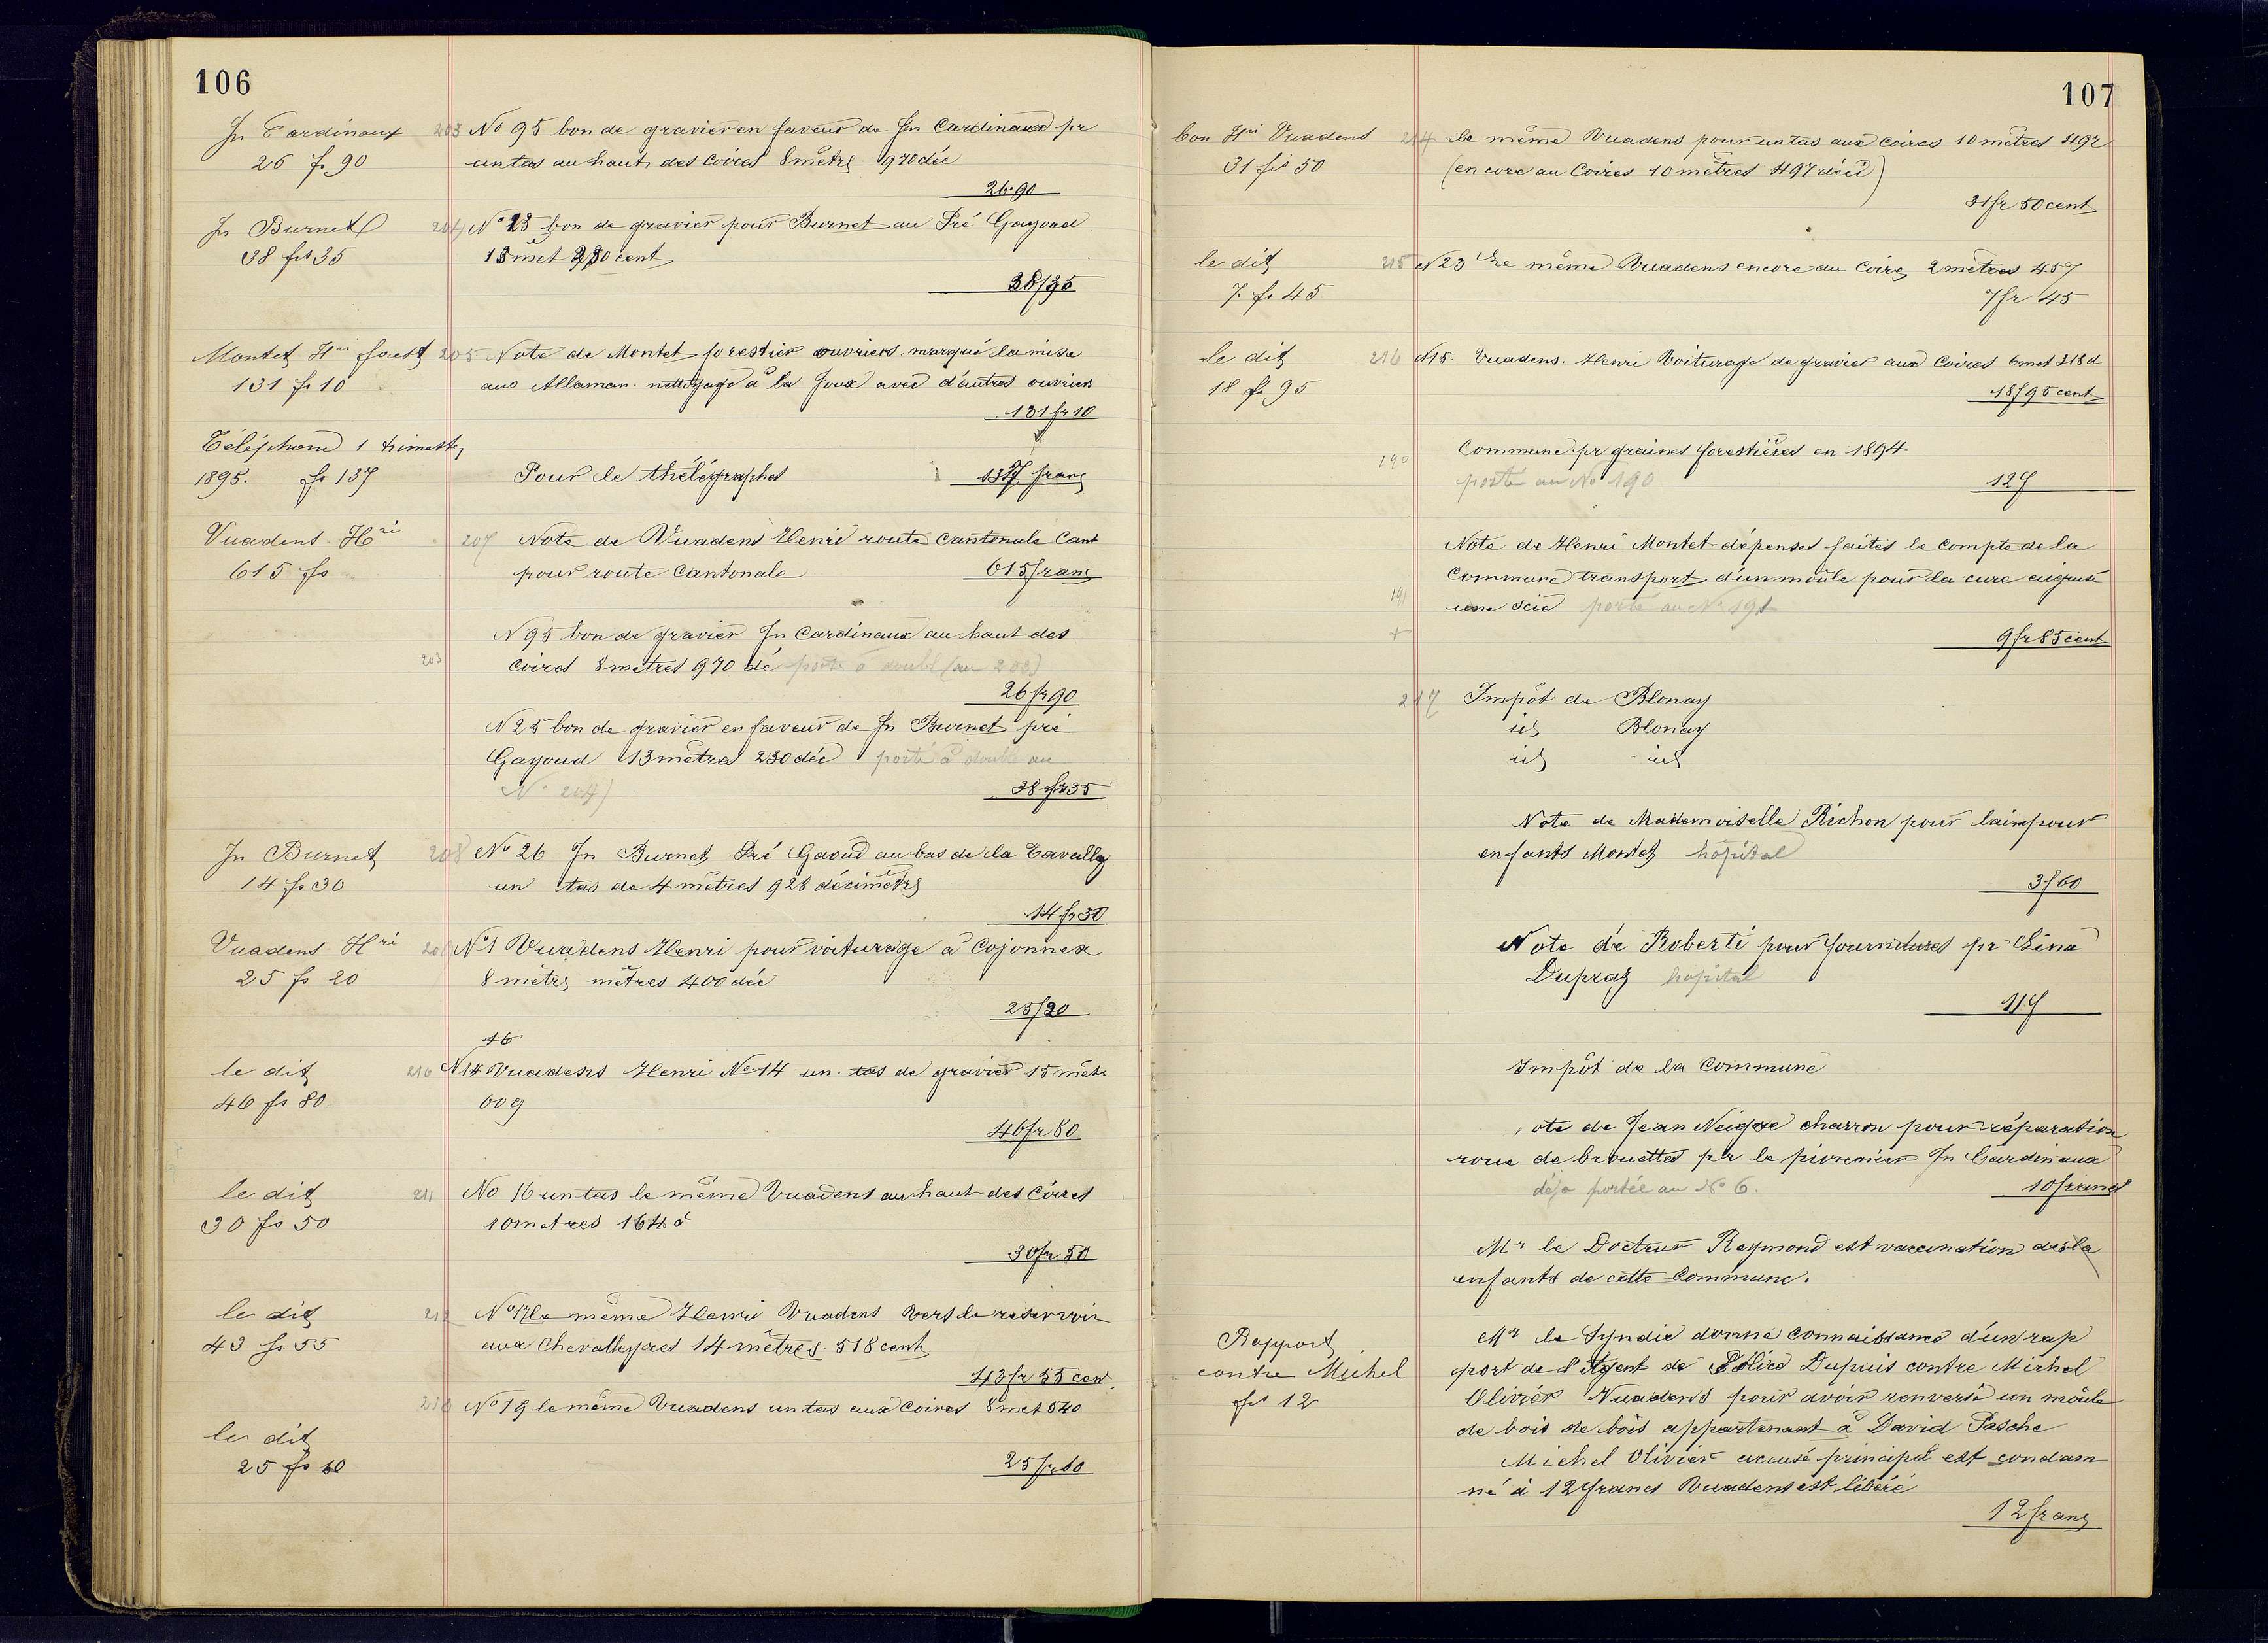 106
Jn Cardinaux
26 fr 90
203 No 95 bon de gravier en faveur de Jn Cardinaux pr
un tas au haut des Coires 8 mètres 970 déc
26.90
Jn Burnet
38 frs 35
204 No 25 bon de gravier pour Burnet au Pré Gayoud
13 met 230 cent
38/35
Montet Hri forest
131 fr 10
205 Note de Montet forestier ouvriers marqué la mise
aus Allaman nettoyage à la Joux avec d'autres ouvriers
131 fr 10
Téléphone 1 trimestre
1895. fr 137
Pour le thélégraphes
137 franc
Vuadens Hri
615 frs
207 Note de Vuadens Henri route Cantonale Cant
pour route Cantonale
615 franc
N 95 bon de gravier Jn Cardinaux au haut des
203 Coires 8 metres 970 dé porté à doubl (au 203)
26 fr 90
N 25 bon de gravier en faveur de Jn Burnet pré
Gayoud 13 mètres 230 déc porté à double au
No 204)
38 fr 35
Jn Burnet
14 fr 30
208 No 26 Jn Burnet Pré Gaoud au bas de la Cavallaz
un tas de 4 mètres 928 décimètres
14 fr 30
Vuadens Hri
25 fr 20
209 No 1 Vuadens Henri pour voiturage à Cojonnex
8 mètres mètres 400 déc
25/20
16
le dit
46 frs 80
210 N 14 Vuadens Henri No 14 un tas de gravier 15 mèt.
609
46 fr 80
le dit
30 frs 50
211 No 16 un tas le même Vuadens au haut des Coires
10 metres 164 d
30 fr 50
le dit
43 fr 55
212 No 17 le même Henri Vuadens vers le reservoir
aux Chevalleyres 14 mètres 518 cent
43 fr 55 cen
213 No 19 le même Vuadens un tas aux Coires 8 met 540
le dit
25 frs 60
25 fr 60
107
bon Hri Vuadens
31 frs 50
214 le même Vuadens pour un tas aux Coires 10 mètres 497
(encore au Coires 10 mètres 497 déci)
31 fr 50 cent
le dit
7 fr 45
215 N 23 Le même Vuadens encore au Coires 2 mètres 457
7 fr 45
le dit
18 fr 95
216 N 15. Vuadens Henri Voiturage de gravier aux Coires 6 met 318 d
18/95 cent
Commune pr graines forestières en 1894
190 porté au No 190
127
Note de Henri Montet dépenses faites le compte de la
Commune transport d'un moûle pour la cure aiguisé
191 une scie porté au No 191
+
9 fr 85 cent
217 Impôt de Blonay
id Blonay
id id
Note de Mademoiselle Richon pour laine pour
enfants Montet hôpital
3/60
Note de Roberti pour fournitures pr Léna
Dupraz hôpital
117
Impôt de la Commune
ote de Jean charron pour réparation
roue de brouettes pr le pionnier Jn Cardinaux
déjà portée au No 6.
10 francs
Mr le Docteur Reymond est vaccination des la
enfants de cette Commune.
Rapport
contre Michel
frs 12
Mr le Syndic donne connaissance d'un rap
port de l'Agent de Police Dupuis contre Michel
Olivier Vuadens pour avoir renversé un moûle
de bois de bois appartenant à David Pasche
Michel Olivier accusé principal est condam
né à 12 francs Vuadens est libéré
12 franc